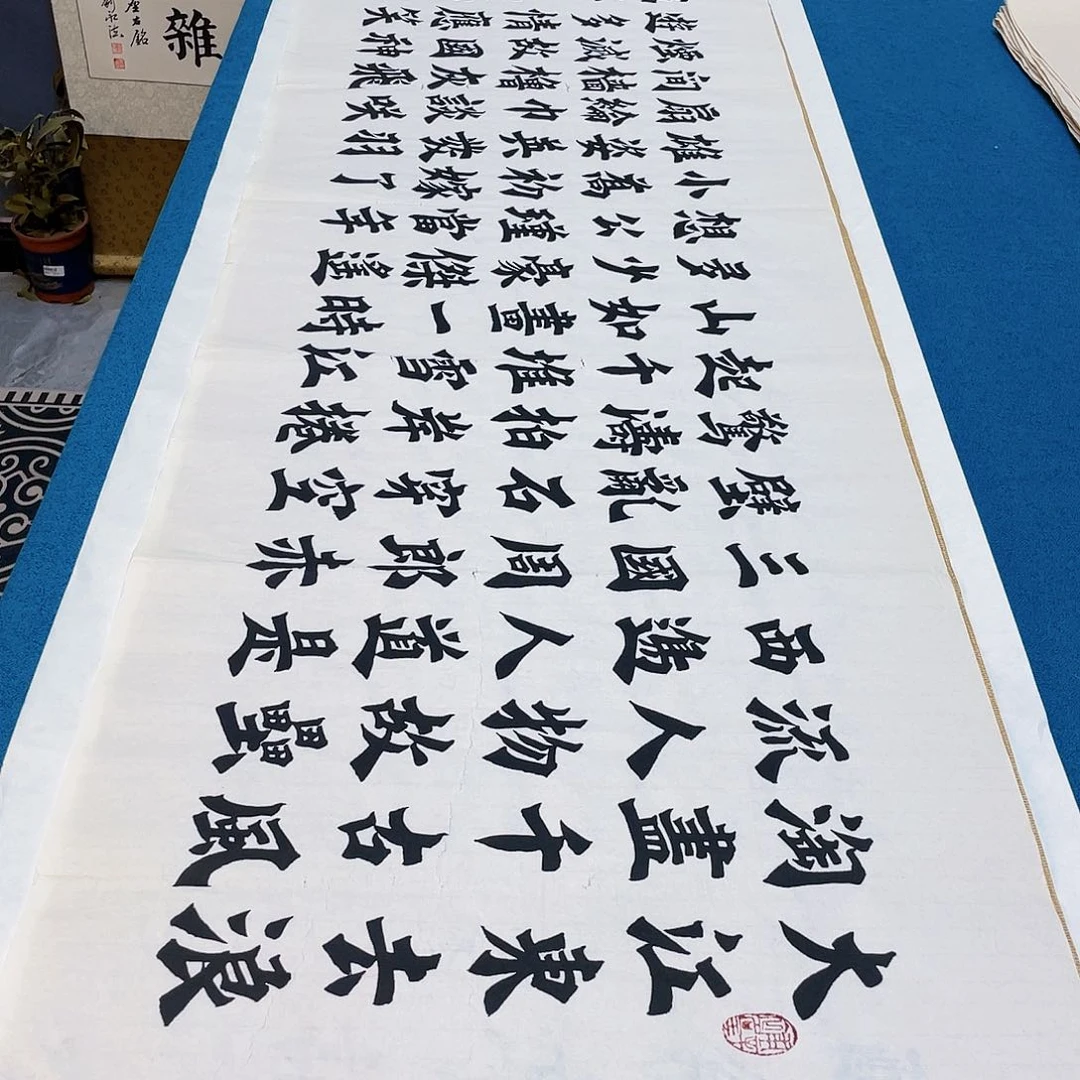 大江東去浪
淘盡千古風
流人物故壘
西邊人道是
三國周郎赤
壁亂石穿空
驚濤拍岸捲
起千堆雪江
山如畫一時
多少豪傑遙
想公瑾當年
小喬初嫁了
雄姿英發羽
扇綸巾談笑
間檣櫓灰飛
煙滅故國神
遊多情應笑
雜
座右銘